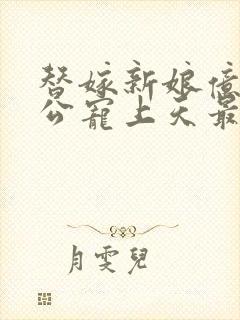 替嫁新娘億
公寵上天最
月雯兒